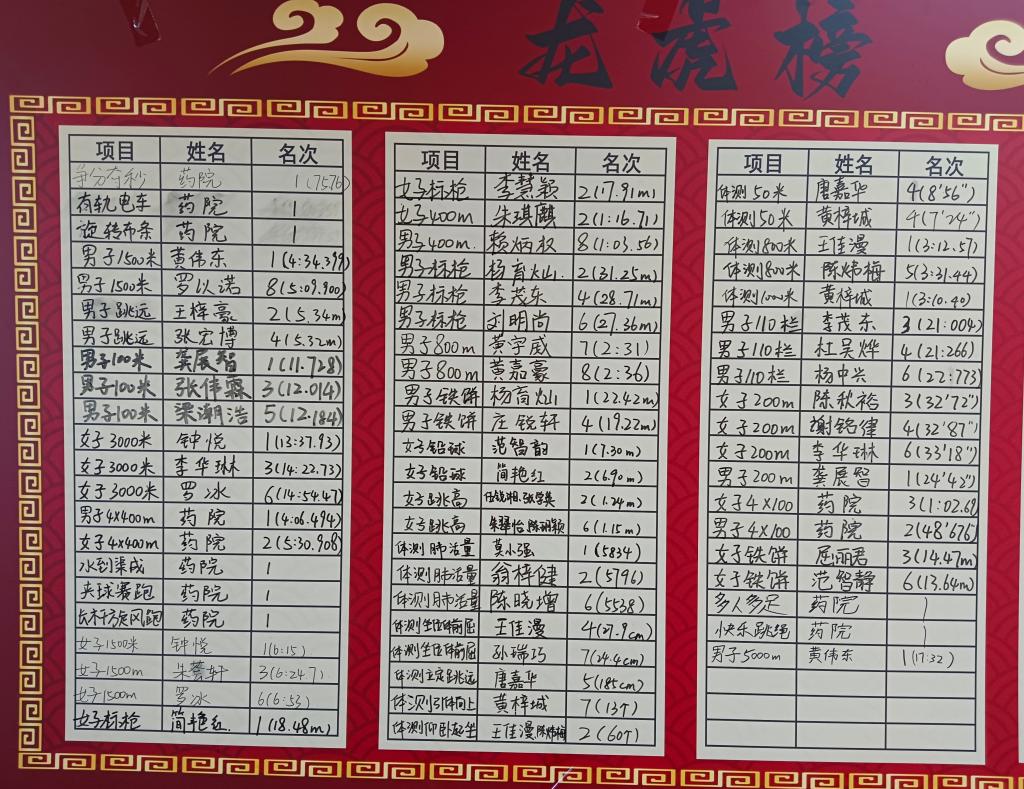 龙虎榜
项目 姓名 名次
争分夺秒 药院 1(7576)
有轨电车 药院 1
旋转布条 药院 1
男子1500米 黄伟东 1(4:34.399)
男子1500米 罗以诺 8(5:09.900)
男子跳远 王梓豪 2(5.34m)
男子跳远 张宏博 4(5.32m)
男子100米 龚展智 1(11.728)
男子100米 张伟霖 3(12.014)
男子100米 梁潮浩 5(12.184)
女子3000米 钟悦 1(13:37.93)
女子3000米 李华琳 3(14:22.73)
女子3000米 罗冰 6(14:54.47)
男子4X400m 药院 1(4:06.494)
女子4x400m 药院 2(5:30.908)
水到渠成 药院 1
夹球赛跑 药院 1
长杆旋风跑 药院 1
女子1500米 钟悦 1(6:15)
女子1500m 3(6:247)
女子1500m 罗冰 6(6:53)
女子标枪 简艳红. 1(18.48m)
项目 姓名 名次
女子标枪 李慧颖 2(17.91m)
女子400m 朱琪麟 2(1:16.71)
男子400m. 赖炳权 8(1:03.56)
男子标枪 杨育灿. 2(31.25m)
男子标枪 李茂东 4(28.71m)
男子标枪 刘明尚 6(27.36m)
男子800m 黄宇威 7(2:31)
男子800m 黄嘉豪 8(2:36)
男子铁饼 杨育灿 1(22.42m)
男子铁饼 庄锐轩 4(19.22m)
女子铅球 范智韵 1(7.30m)
女子铅球 简艳红 2(6.90m)
女子跳高 2(1.24m)
女子跳高 6(1.15m)
体测肺活量 莫小强 1(5834)
体测肺活量 翁梓健 2(5796)
体测肺活量 陈晓增 6(5538)
体测坐位体前屈 王佳漫 4(27.9cm)
体测坐位体前屈 孙瑞巧 7(24.4cm)
体测立定跳远 唐嘉华 5(185cm)
体测引体向上 黄梓城 7(13个)
体测仰卧起坐 王佳漫.陈炜梅 2(60个)
项目 姓名 名次
体测50米 唐嘉华 4(8'56")
体测50米 黄梓城 4(7'24")
体测800米 王佳漫 1(3:12.57)
体测800米 陈炜梅 5(3:31.44)
体测1000米 黄梓城 1(3:10.40)
男子110栏 李茂东 3(21:004)
男子110栏 杜昊烨 4(21:266)
男子110栏 杨中兴 6(22:773)
女子200m 陈秋裕 3(32'72")
女子200m 谢铭健 4(32'87")
女子200m 李华琳 6(33'18")
男子200m 龚展智 1(24'42")
女子4X100 药院 3(1:02.62)
男子4X100 药院 2(48'676)
女子铁饼 屈丽君 3(14.47m)
女子铁饼 范智静 6(13.64m)
多人多足 药院 1
快乐跳绳 药院 1
男子5000m 黄伟东 1(17:32)